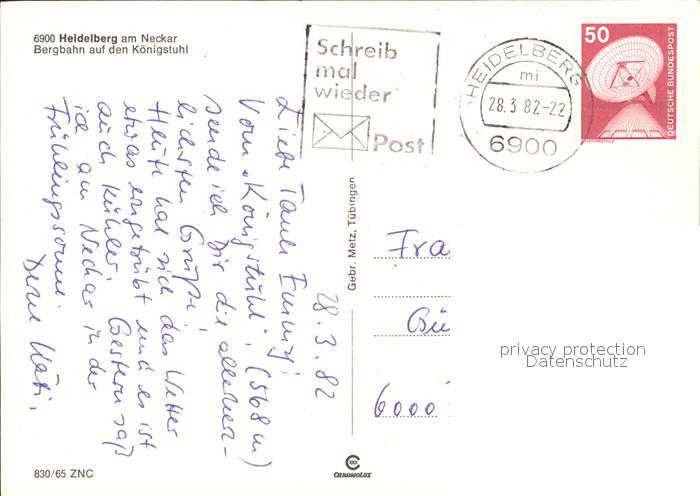 6900 Heidelberg am Neckar
Bergbahn auf den Königstuhl
Schreib
mal
wieder
Post
HEIDELBERG
mi
28.3.82-22
6900
50
DEUTSCHE BUNDESPOST
28.3.82
Liebe Tante Emmy!
Vom "Königstuhl", (568 m)
sende ich Dir die allerherz-
lichsten Grüße!
Heute hat sich das Wetter
etwas eingetrübt und es ist
auch kühler. Gestern saß
ich am Neckar in der
Frühlingssonne.
Deine Käti.
Gebr. Metz, Tübingen
Fra
Bü
6000
privacy protection
Datenschutz
830/65 ZNC
CHROMOLUX